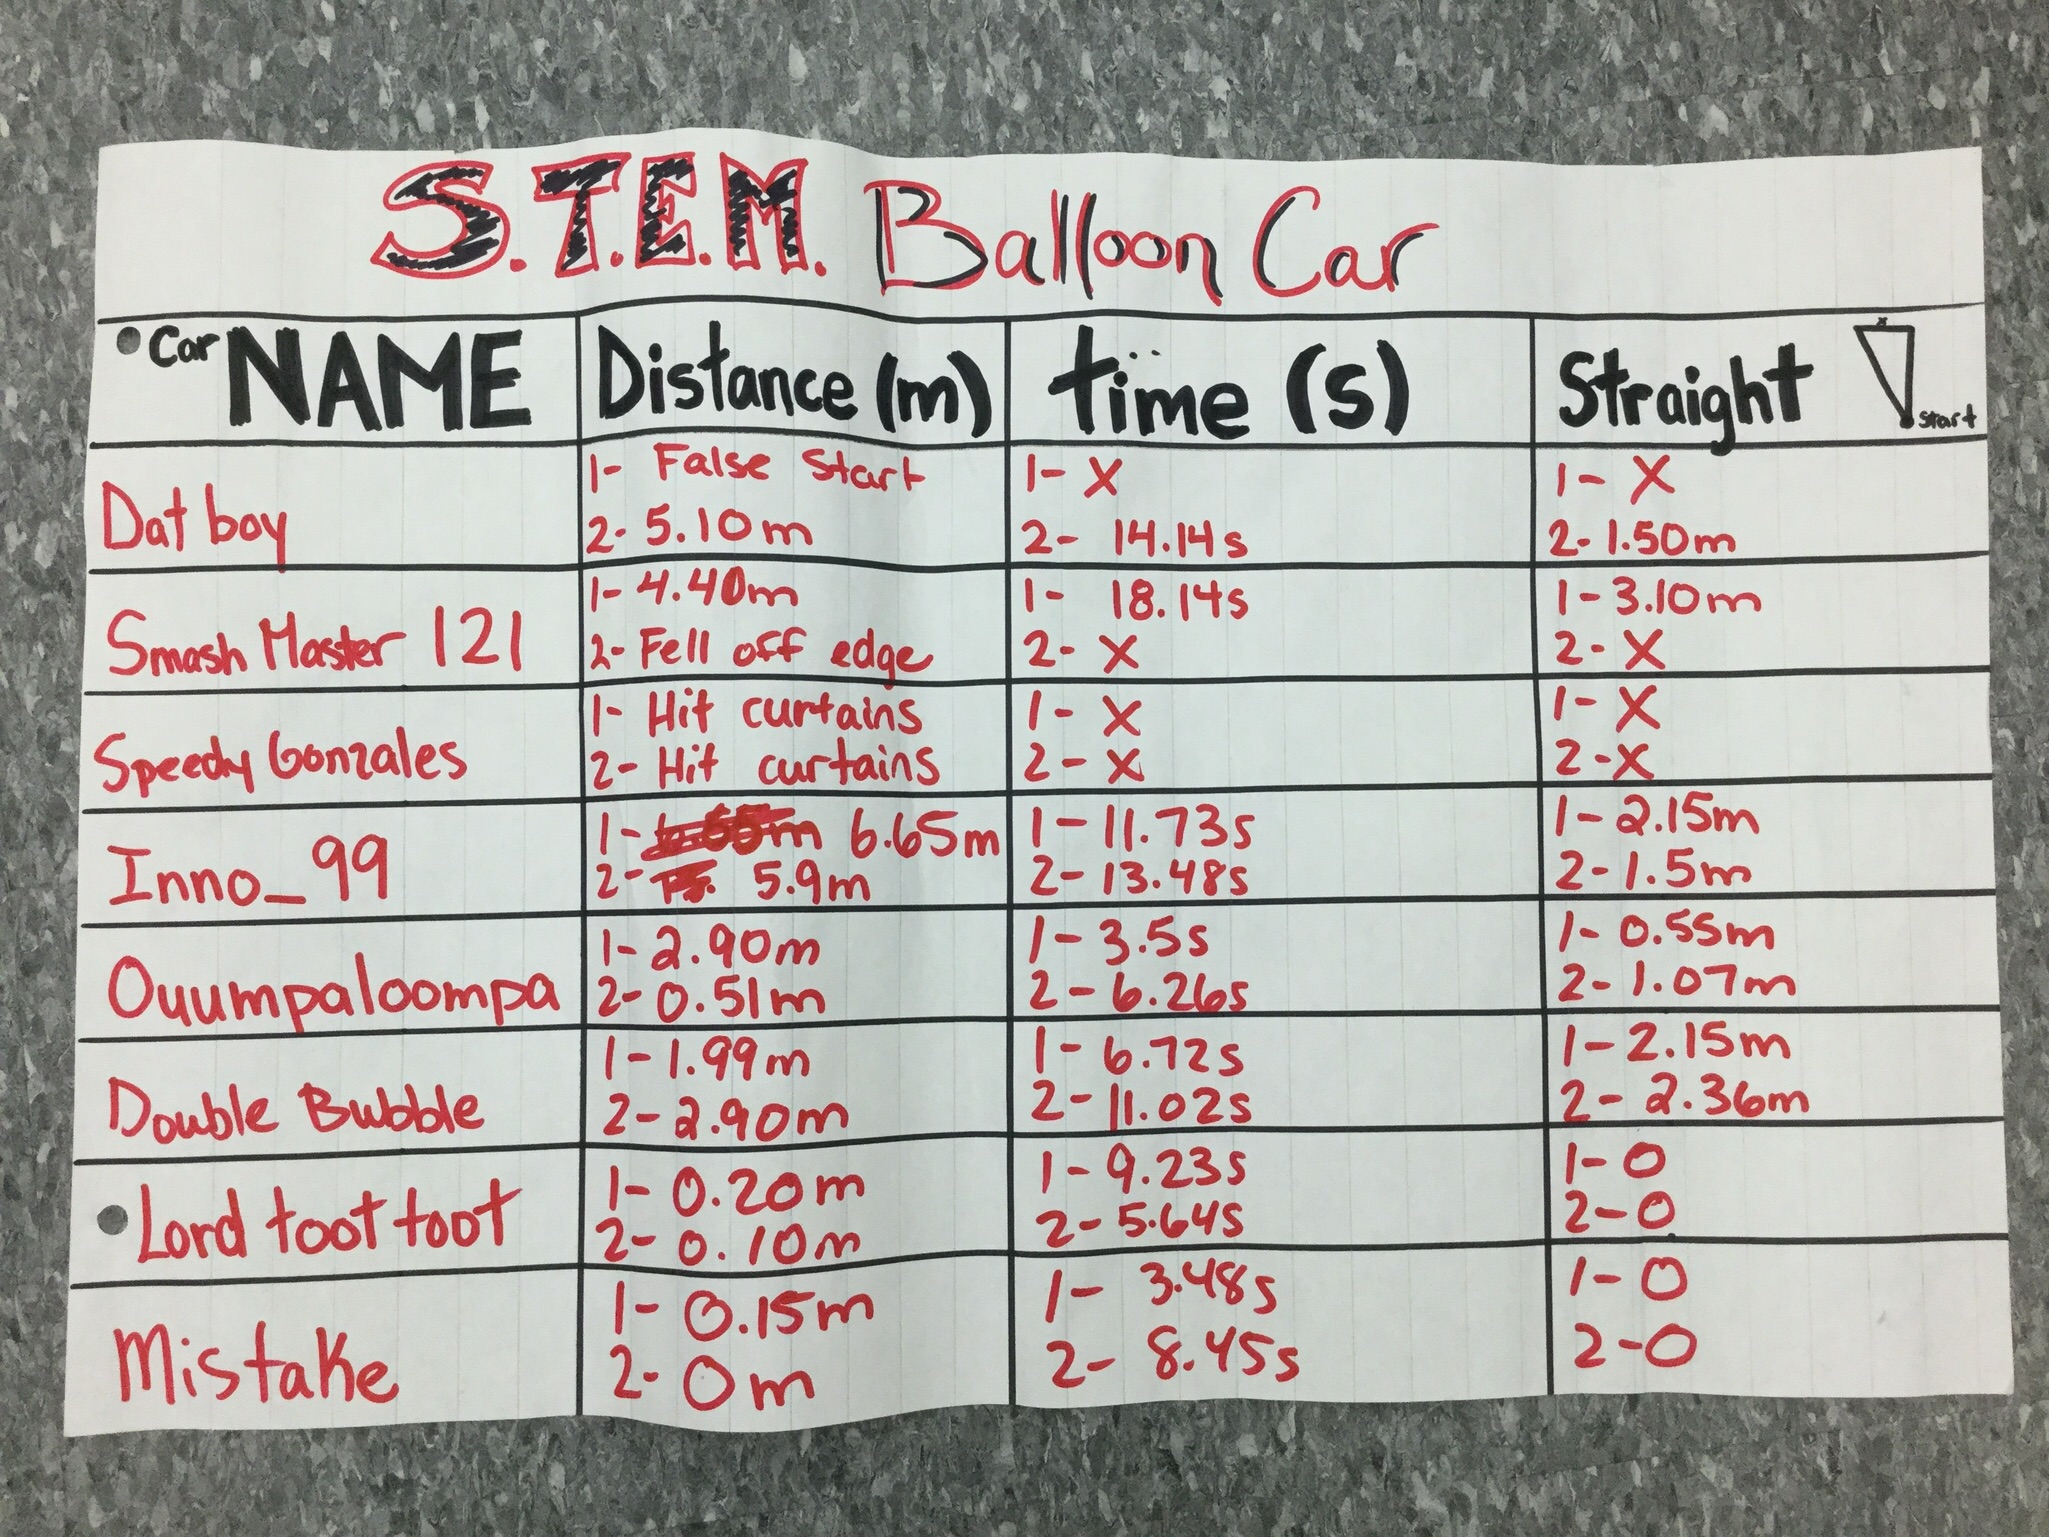 S.T.E.M. Balloon Car
Car NAME Distance (m) time (s) Straight x start
Dat boy
1- False Start 1- X 1- X
2- 5.10m 2- 14.14s 2- 1.50m
Smash Master 121
1- 4.40m 1- 18.14s 1- 3.10m
2- Fell off edge 2- X 2- X
Speedy Gonzales
1- Hit curtains 1- X 1- X
2- Hit curtains 2- X 2-X
Inno_99
1- 6.65m 1- 11.73s 1- 2.15m
2- 5.9m 2- 13.48s 2- 1.5m
Ouumpaloompa
1- 2.90m 1- 3.5s 1- 0.55m
2- 0.51m 2- 6.26s 2- 1.07m
Double Bubble
1- 1.99m 1- 6.72s 1- 2.15m
2- 2.90m 2- 11.02s 2- 2.36m
Lord toot toot
1- 0.20m 1- 9.23s 1- 0
2- 0.10m 2- 5.64s 2- 0
Mistake
1- 0.15m 1- 3.48s 1- 0
2- 0m 2- 8.45s 2-0